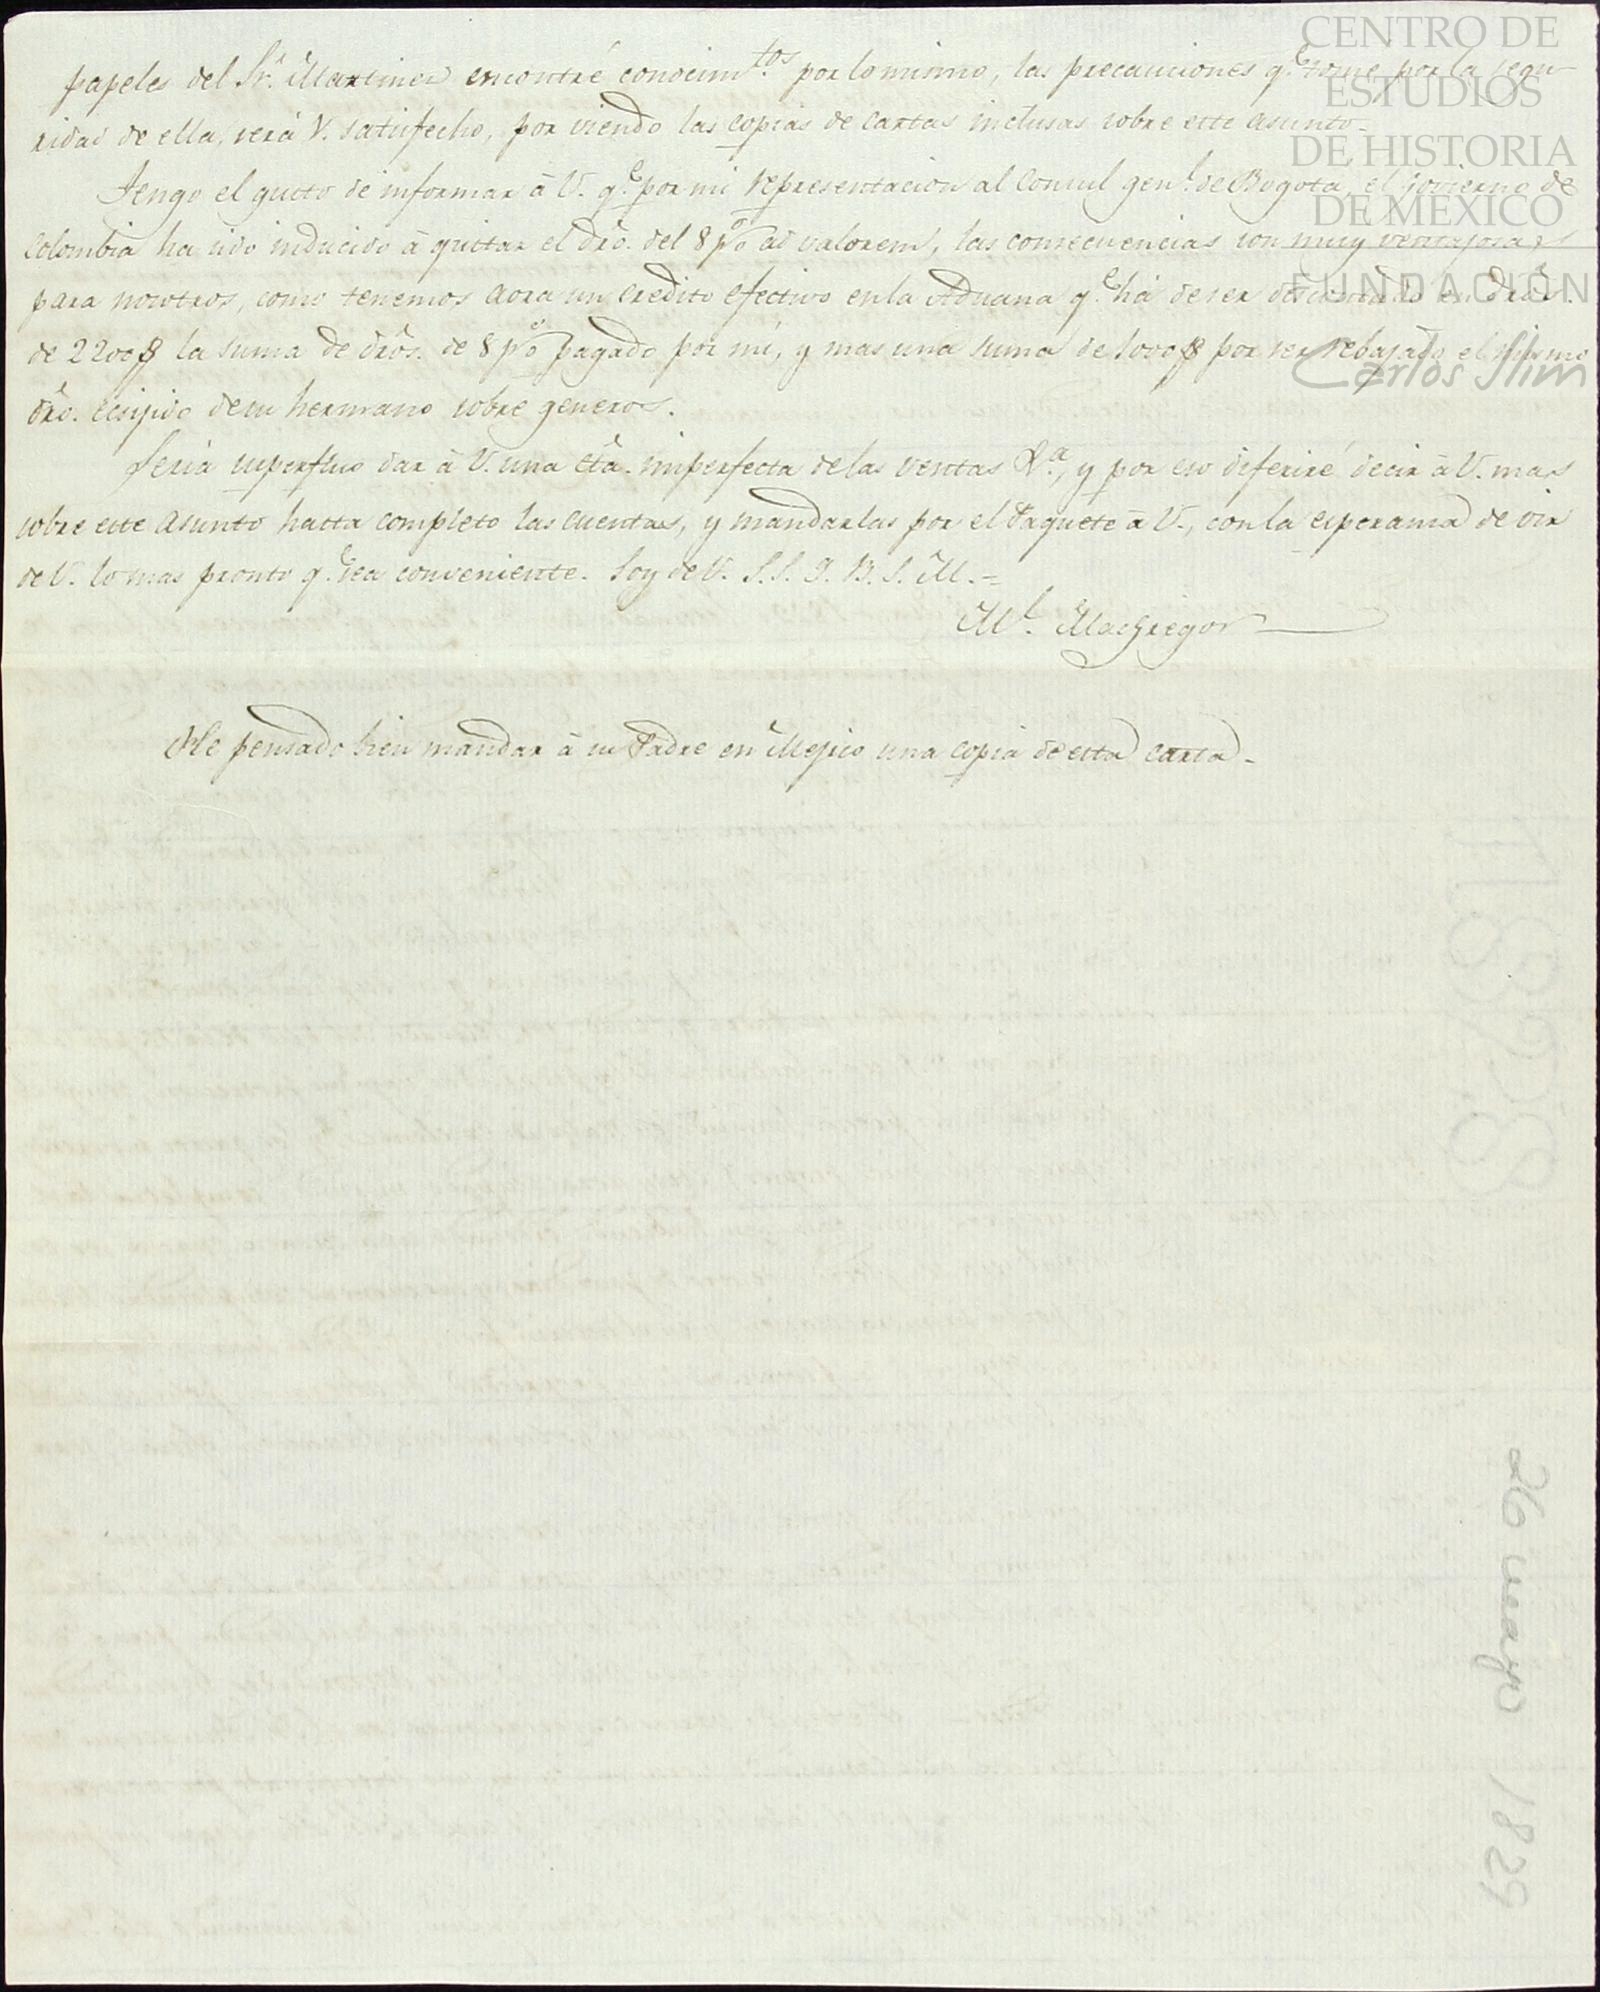 papeles del Sr. Martinez encontré conocimtos por lo mismo, las precauciones qe tomé por la segu-
ridad de ella, verá V. satisfecho, por viendo las copias de cartas inclusas sobre este asunto.
Tengo el gusto de informar à V. qe por mi representacion al Consul genl. de Bogota, el govierno de
Colombia ha sido inducido à quittar el dro. del 8 p% ad valorem, las consecuencias son muy ventajosas
para nosotros, como tenemos aora un credito efectivo en la Aduana qe há de ser descontado en dros.
de 2200$ la suma de dros. de 8 p% pagado por mi, y mas una suma de 1000$ por ser rebajado el mismo
dro. ecsijido de su hermano sobre generos.
Seria superfluo dar à V. una cta. imperfecta de las ventas &a., y por eso diferiré decir à V. mas
sobre este asunto hasta completo las cuentas, y mandarlas por el Paquete à V., con la esperanza de oir
de V. lo mas pronto qe sea conveniente. Soy de V. S. S. Q. B. S. M. =
Ml. MacGregor
He pensado bien mandar à su Padre en Mejico una copia de esta carta.
CENTRO DE
ESTUDIOS
DE HISTORIA
DE MÉXICO
FUNDACIÓN
Carlos Slim
26 mayo 1829